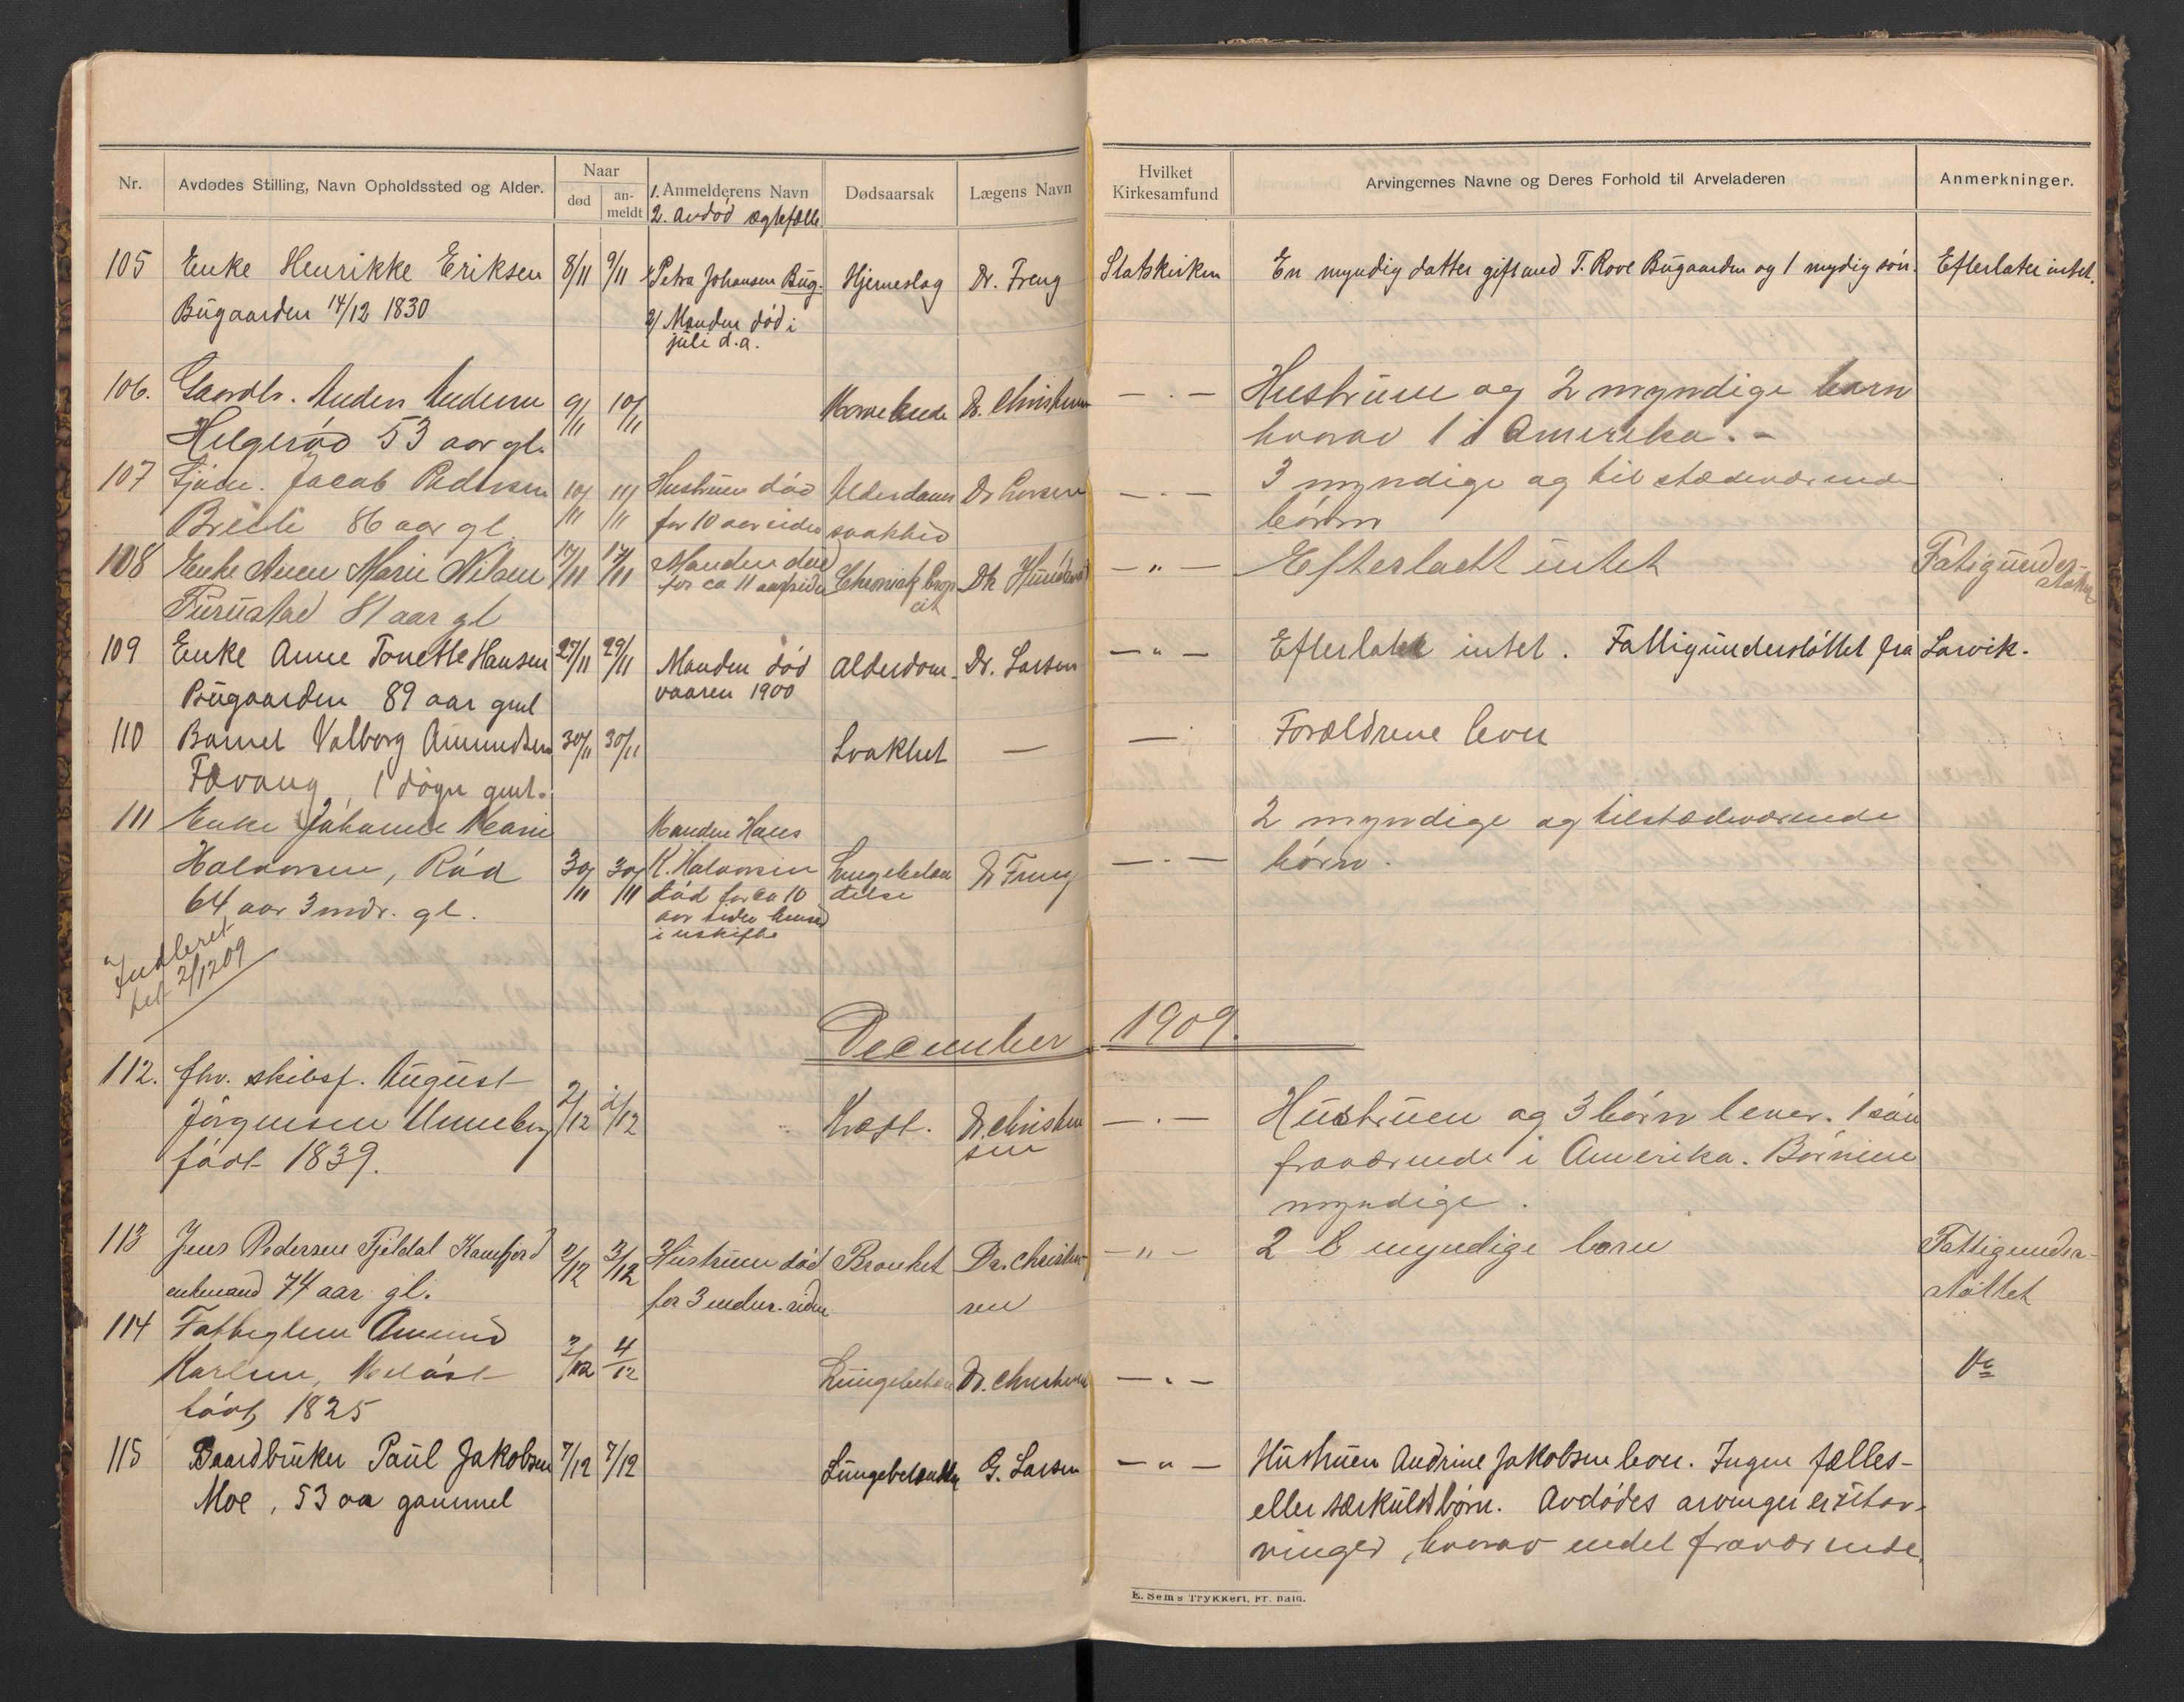 Nr. Avdødes Stilling, Navn Opholdssted og Alder. Naar død an-meldt 1. Anmelderens Navn Dødsaarsak Lægens Navn Hvilket Kirkesamfund Arvingernes Navne og Deres Forhold til Arveladeren Anmerkninger.
2. Avdød ægtefælle
105 Enke Henrikke Eriksen 8/11 9/11 1/ Petra Johansen Bug. Hjerneslag Dr. Freng Statskirken En myndig datter gift med T. Rove Bugaarden og 1 mydig søn. Efterlater intet.
Bugaarden 14/12 1830 2/ Manden død i
juli d.a.
106. Gaardbr. Anders Andersen 9/11 10/11 Dr. Christensen — . — Hustruen og 2 myndige barn
Helgerød 53 aar gl. hvorav 1 i Amerika. -
107 Jacob Pedersen 10/11 11/11 Hustruen død Alderdoms Dr Larsen — . — 3 myndige og tilstædeværende
86 aar gl for 10 aar siden svakhed børn
108 Enke Anne Marie Nilsen 17/11 17/11 Manden død Chronisk Dr — " — Efterladt intet Fatigunder-
Furustad 81 aar gl for ca 11 aar siden støttet
109 Enke Anne Tonette Hansen 27/11 29/11 Manden død Alderdom Dr. Larsen — " — Efterlater intet. Fattigunderstøttet fra Larvik.
Bugaarden 89 aar gml vaaren 1900
110 Barnet Valborg Amundsen 30/11 30/11 Svakhet — — Forældrene lever
Fævang, 1 døgn gml.
111 Enke Johanne Marie Manden Hans 2 myndige og tilstædeværende
Halvorsen, Rød 30/11 30/11 K. Halvorsen Lungebetæn Dr Freng — . — børn.
64 aar 3 mdr. gl. død for ca 10 delse
aar siden hensad
i uskifte
Indleret
2/12 09
December 1909.
112. fhv. skibsf. August 2/12 2/12 Kræft. Dr. Christen — . — Hustruen og 3 børn lever. 1 søn
Jörgensen Unneberg sen fraværende i Amerika. Børnene
født 1839. myndige.
113 Jens Pedersen Fjeldal Kamfjord 2/12 3/12 Hustruen død Bronket Dr. Christen — " — 2 myndige børn Fattigunder-
enkemand 74 aar gl. for 3 mdr. siden sen støttet
114 Fattiglem Amund 3/12 4/12 Lungebetæn Dr. Christensen — . —
Karlsen,
født 1825
115 Gaardbruker Paul Jakobsen 7/12 7/12 Lungebetændelse G. Larsen — " — Hustruen Andrine Jakobsen lever. Ingen fælles-
Moe, 53 aa gammel eller særkuldsbørn. Avdødes arvinger er utar-
vinger, hvorav endel fraværende.
E. Sems Trykkeri, Fr. hald.